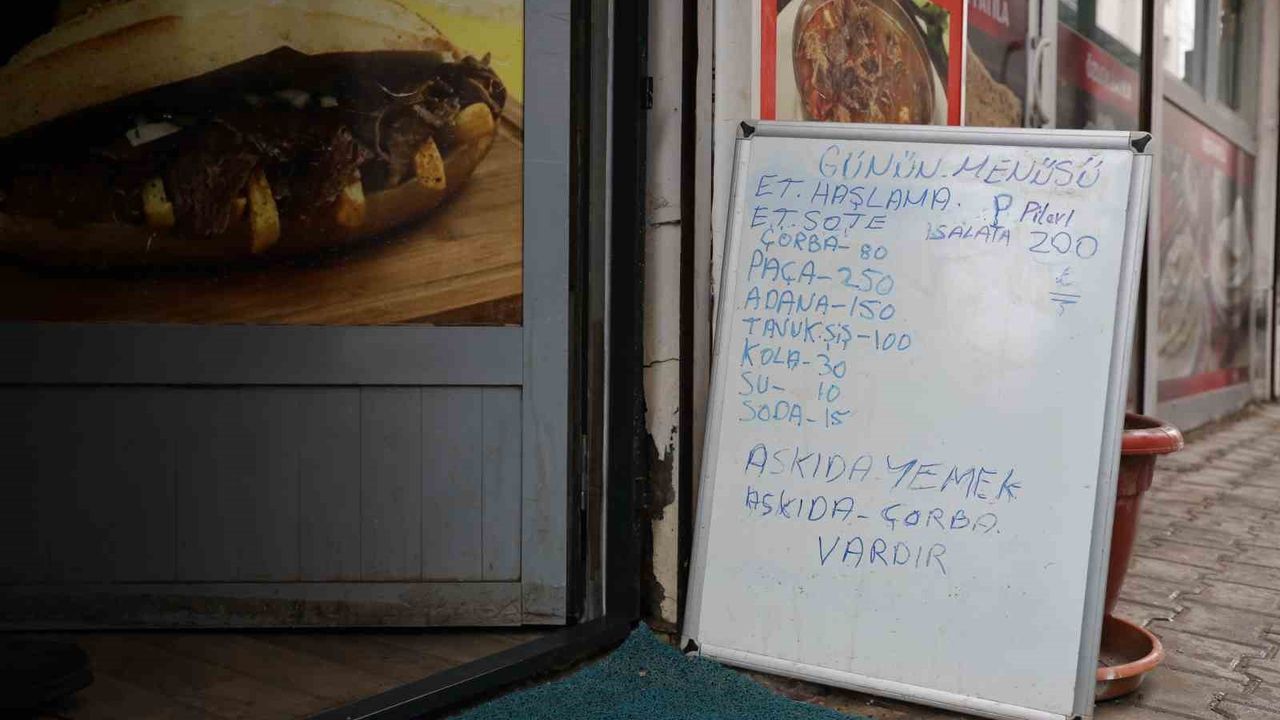 GÜNÜN. MENÜSÜ
ET. HAŞLAMA. P Pilavı
ET. SOTE SALATA 200
ÇORBA- 80 ₺
PAÇA-250
ADANA-150
TAVUK.ŞİŞ-100
KOLA-30
SU- 10
SODA-15
ASKIDA YEMEK
ASKIDA-ÇORBA.
VARDIR